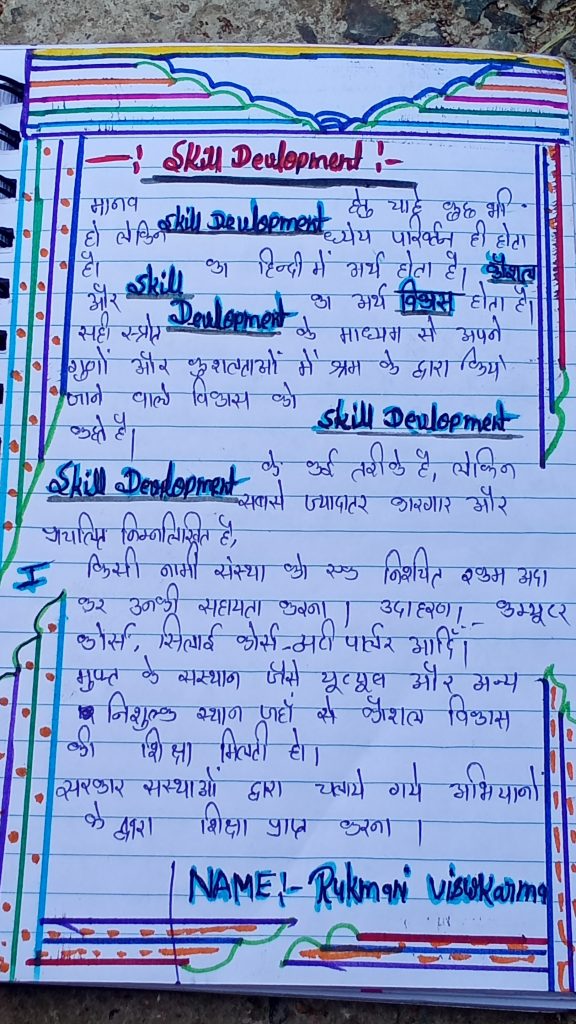 —:! Skill Devlopment !:-
मानव Skill Devlopment हेतु चाहे कुछ भी
हो लेकिन ध्येय परिवर्तन ही होता
है। Skill का हिन्दी में अर्थ होता है। कौशल
और Devlopment का अर्थ विकास होता है।
सही स्त्रोत के माध्यम से अपने
गुणों और कुशलताओं में श्रम के द्वारा किये
जाने वाले विकास को Skill Devlopment
कहते है।
Skill Devlopment के कई तरीके है, लेकिन
सबसे ज्यादातर कारगार और
प्रचलित निम्नलिखित है,
I किसी नामी संस्था को एक निश्चित रकम अदा
कर उनकी सहायता करना। उदाहरण!- कम्प्यूटर
कोर्स, सिलाई कोर्स पार्लर आदि।
मुफ्त के संस्थान जैसे यूट्यूब और अन्य
निशुल्क स्थान जहाँ से कौशल विकास
की शिक्षा मिलती हो।
सरकार संस्थाओं द्वारा चलाये गये अभियानों
के द्वारा शिक्षा प्राप्त करना।
NAME!- Rukmani Viswkarma